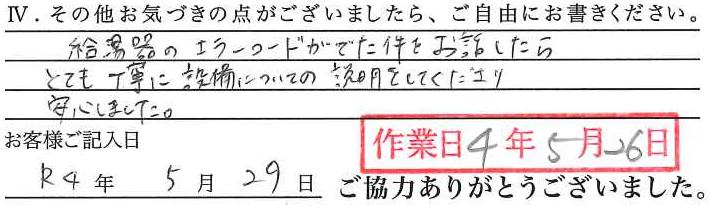 Ⅳ．その他お気づきの点がございましたら、ご自由にお書きください。
給湯器のエラーコードがでた件をお話したら
とても丁寧に設備についての説明をしてくださり
安心しました。
お客様ご記入日
作業日4年5月26日
R4年 5月29日 ご協力ありがとうございました。